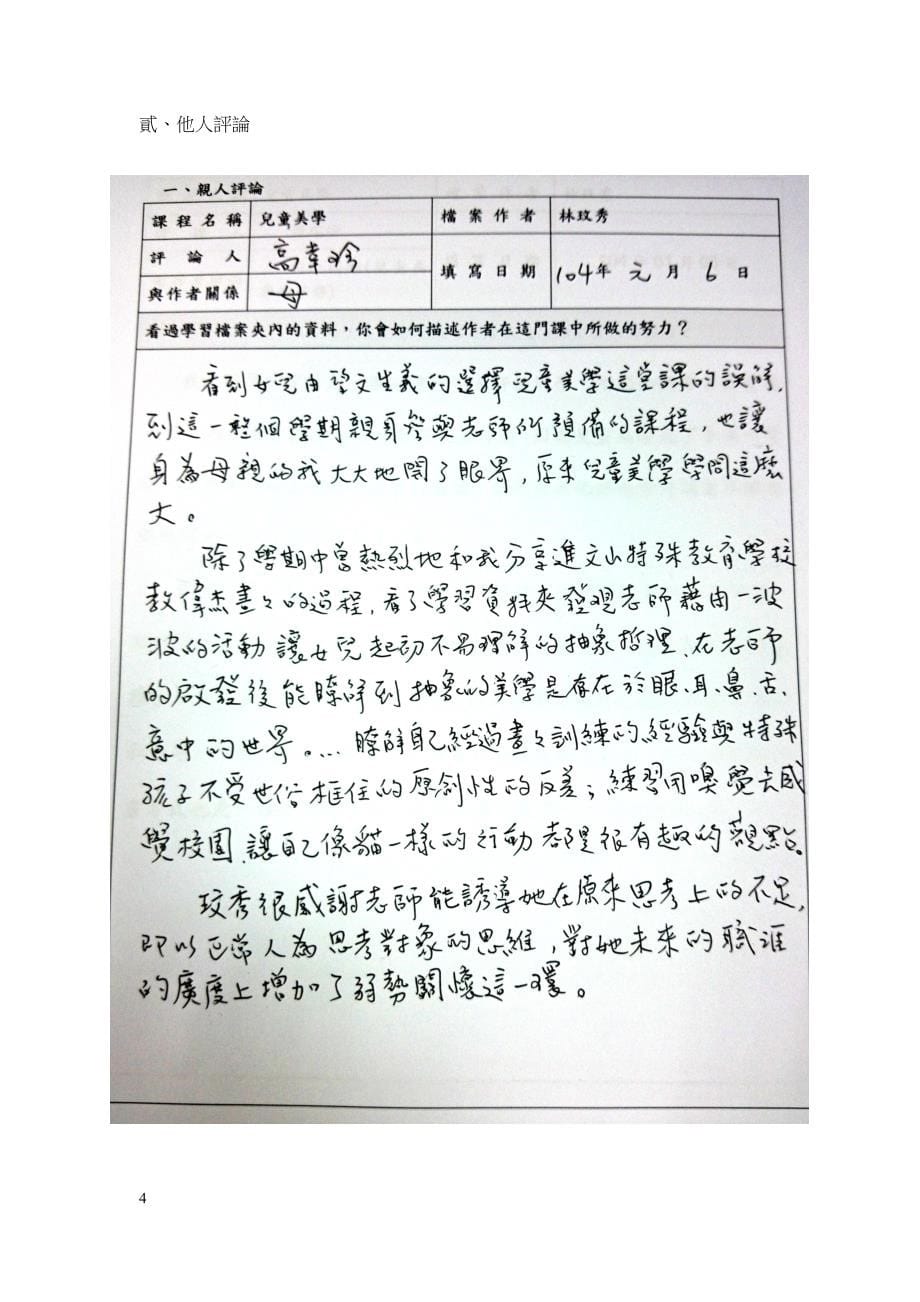 貳、他人評論
一、親人評論
課程名稱 兒童美學 檔案作者 林玟秀
評論人 高韋玲 填寫日期 104年 元 月 6 日
與作者關係 母
看過學習檔案夾內的資料，你會如何描述作者在這門課中所做的努力？
看到女兒由望文生義的選擇兒童美學這堂課的誤解，
到這一整個學期親身參與老師所預備的課程，也讓
身為母親的我大大地開了眼界，原來兒童美學學問這麼
大。
除了學期中曾熱烈地和我分享進文山特殊教育學校
教偉杰畫畫的過程，看了學習資料夾發現老師藉由一波
波的活動讓女兒起初不易理解的抽象哲理、在老師
的啟發後能瞭解到抽象的美學是存在於眼、耳、鼻、舌、
意中的世界。…瞭解自己經過畫畫訓練的經驗與特殊
孩子不受世俗框住的原創性的反差；練習用嗅覺去感
覺校園讓自己像貓一樣的行動都是很有趣的觀點。
玟秀很感謝老師能誘導她在原來思考上的不足，
即以正常人為思考對象的思維，對她未來的職涯
的廣度上增加了弱勢關懷這一環。
4